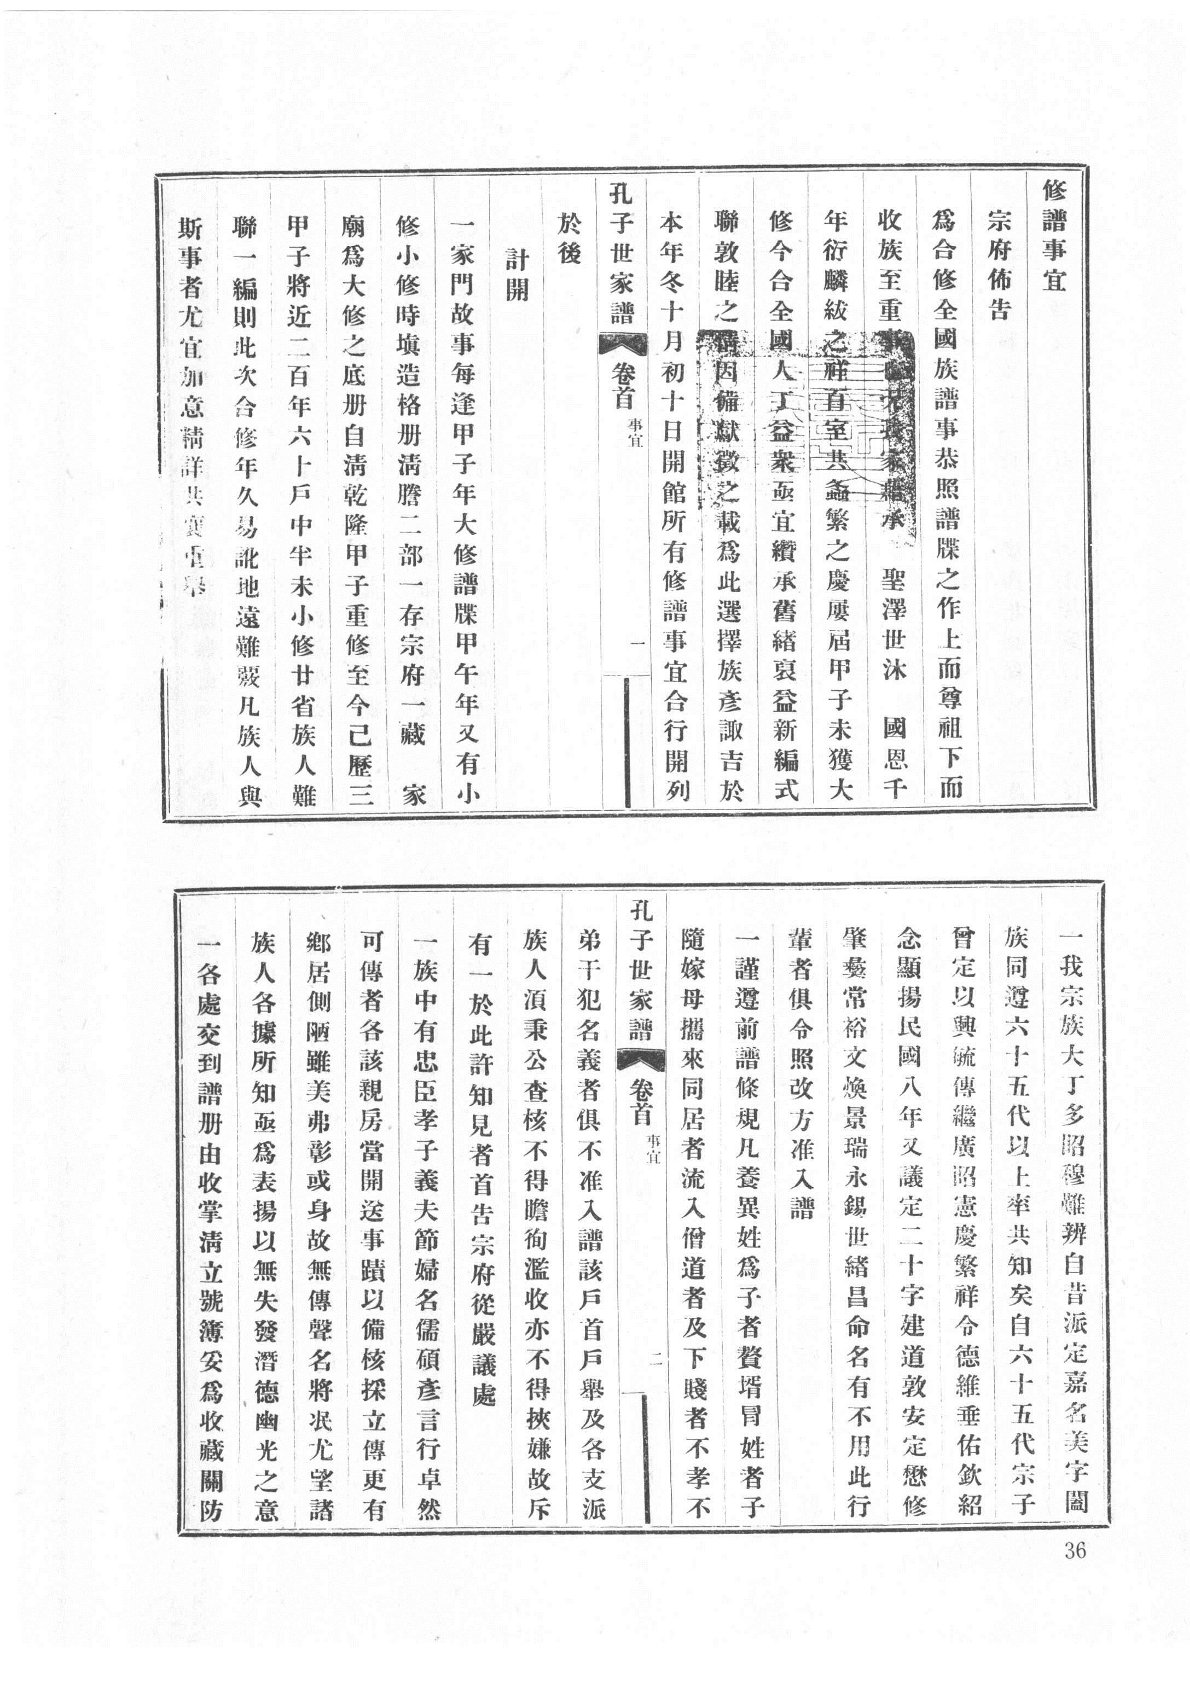 修譜事宜
宗府佈告
爲合修全國族譜事恭照譜牒之作上而尊祖下而
收族至重事也况我家承 聖澤世沐 國恩千
年衍麟紱之祥百室共螽繁之慶屢屆甲子未獲大
修今合全國人丁益衆亟宜纘承舊緒裒益新編式
聯敦睦之情因備獻徵之載爲此選擇族彥諏吉於
本年冬十月初十日開館所有修譜事宜合行開列
孔子世家譜 卷首 事宜 一
於後
計開
一家門故事每逢甲子年大修譜牒甲午年又有小
修小修時塡造格册淸謄二部一存宗府一藏 家
廟爲大修之底册自淸乾隆甲子重修至今已歷三
甲子將近二百年六十戶中半未小修廿省族人難
聯一編則此次合修年久易訛地遠難覈凡族人與
斯事者尤宜加意精詳共襄重舉
一我宗族大丁多昭穆難辨自昔派定嘉名美字闔
族同遵六十五代以上率共知矣自六十五代宗子
曾定以興毓傳繼廣昭憲慶繁祥令德維垂佑欽紹
念顯揚民國八年又議定二十字建道敦安定懋修
肇彝常裕文煥景瑞永錫世緒昌命名有不用此行
輩者俱令照改方准入譜
一謹遵前譜條規凡養異姓爲子者贅壻冒姓者子
隨嫁母攜來同居者流入僧道者及下賤者不孝不
孔子世家譜 卷首 事宜 二
弟干犯名義者俱不准入譜該戶首戶舉及各支派
族人須秉公查核不得瞻徇濫收亦不得挾嫌故斥
有一於此許知見者首告宗府從嚴議處
一族中有忠臣孝子義夫節婦名儒碩彥言行卓然
可傳者各該親房當開送事蹟以備核採立傳更有
鄉居側陋雖美弗彰或身故無傳聲名將泯尤望諸
族人各據所知亟爲表揚以無失發潛德幽光之意
一各處交到譜册由收掌淸立號簿妥爲收藏關防
36